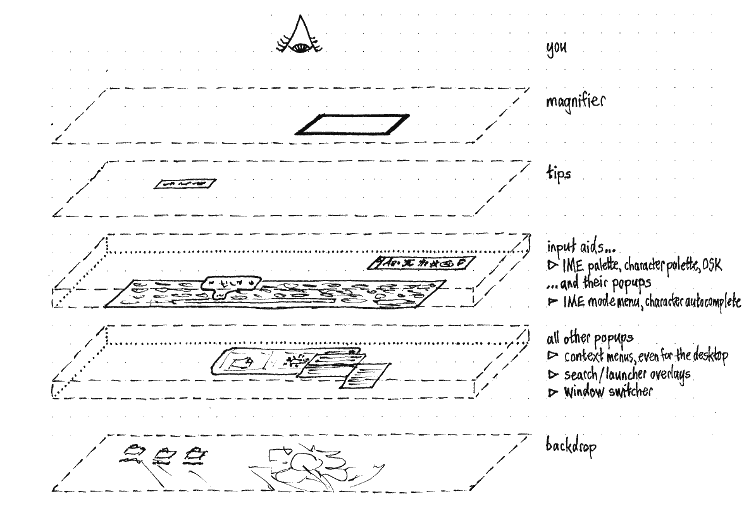 you
magnifier
tips
input aids...
▷ IME palette, character palette, OSK
...and their popups
▷ IME mode menu, character autocomplete
all other popups
▷ context menus, even for the desktop
▷ search/launcher overlays
▷ window switcher
backdrop